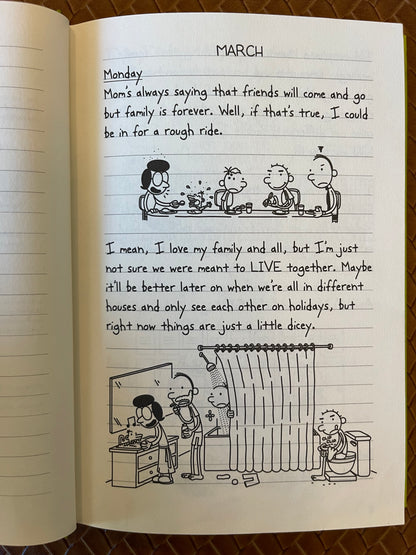 MARCH
Monday
Mom's always saying that friends will come and go
but family is forever. Well, if that's true, I could
be in for a rough ride.
I mean, I love my family and all, but I'm just
not sure we were meant to LIVE together. Maybe
it'll be better later on when we're all in different
houses and only see each other on holidays, but
right now things are just a little dicey.